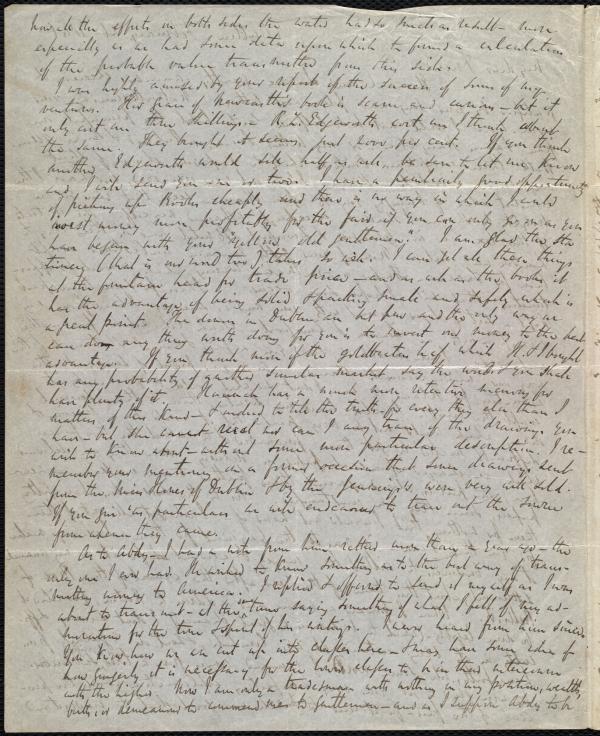 how all the efforts on both sides the water had so much as result – more
especially as we had some data upon which to found a calculation
of the probable value transmitted from this side.
I was highly amused by your report of the success of some of my
ventures. His piece of book is scarce and curious – but it
only cost me three shillings – R. L. Edgeworth cost me I think about
the same. They brought it seems just cent per cent. If you think
another Edgeworth would sell half as well, be sure to let me know
and I will send you one or two. I have a peculiarly good opportunity
of picking up Books cheaply and there is no way in which I could
invest money more profitably for the fair if you can only go on as you
have began with your "yellow old gentlemen". I am glad the
(that is one word two) takes so wish. I can get all these things
at the fountain head for trade price – and as all as the books it
has the advantage of being solid & packing small and safely which is
a great point. The in Dublin are but few and the only way we
can do any thing worth doing for you is to invest our money to the best
advantage. If you think more of the goldbeaters leaf which H. & I bought
has any probability of another similar market, say the word & you shall
have plenty of it. Hannah has a much more retentive memory for
matters of this kind – & indeed to tell the truth for every thing else than I
have – but she cannot nor can I any team of the drawings you
wish to know about – without some more particular description. I re-
member your mentioning on a former occasion that some drawings sent
from the Miss of Dublin & by the Jennings's were very well sold.
If you give us particulars we will endeavour to trace out the source
from whence they came.
As to Abdy – I had a note from him rather more than a year ago – the
only one I ever had. He wished to know something as to the best way of trans-
mitting money to America. I replied & offered to send it myself as I was
about to transmit – at the same time saying something of what I felt of my ad-
miration for the tone & spirit of his writings. I never heard from him since.
You know how we are cut up into classes here – & may have some idea of
how gingerly it is necessary for the lower classes to be in their intercourse
with the higher. Now I am only a tradesman with nothing in my position, wealth,
birth, or demeanour to commend me to gentlemen – and as I suppose Abdy to be